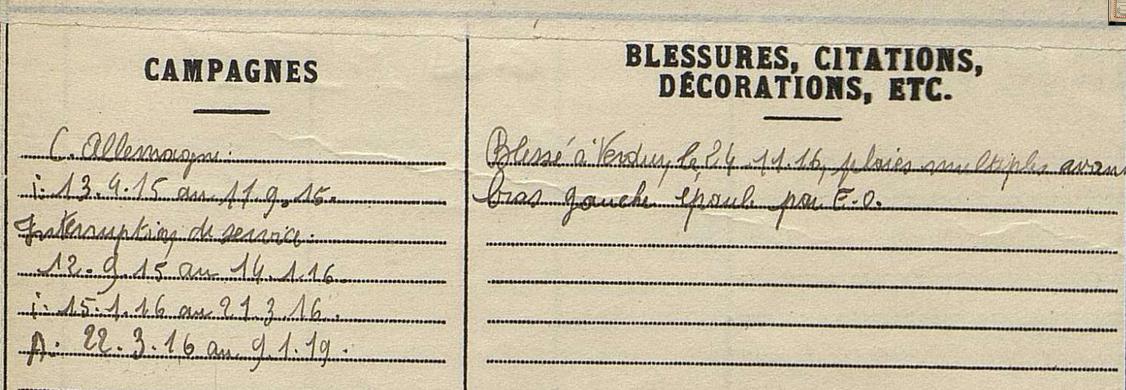 CAMPAGNES
C. Allemagne.
i: 13.4.15 au 11.9.15.
Interruption de service.
12.9.15 au 14.1.16.
i: 15.1.16 au 21.3.16.
A: 22.3.16 au 9.1.19.
BLESSURES, CITATIONS,
DÉCORATIONS, ETC.
Blessé à Verdun, le 24.11.16, plaies multiples avant
bras gauche épaule par E.O.